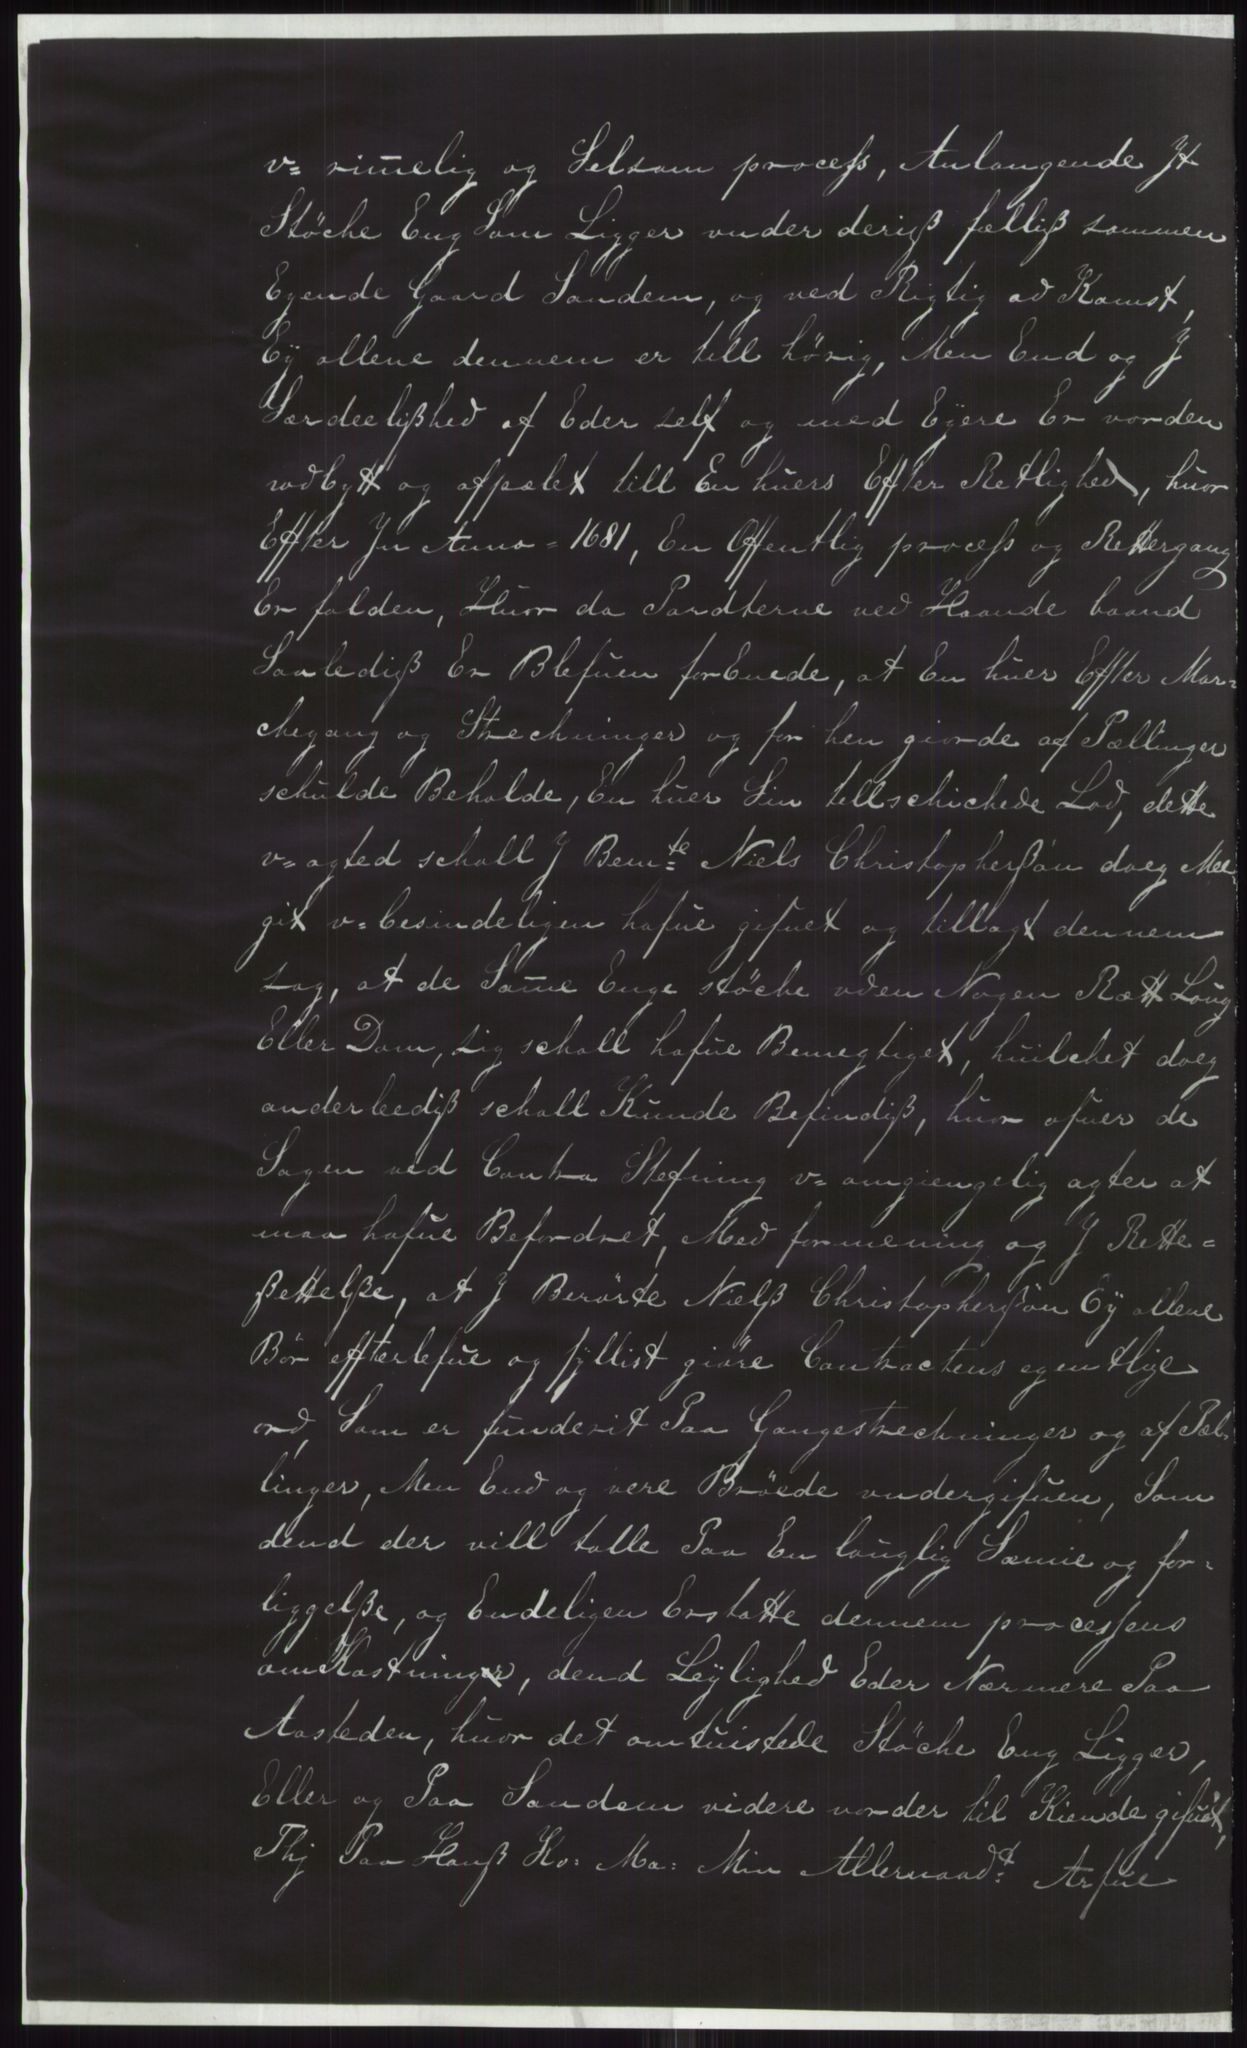 v= rim̄elig og Selsom process, Anlangende Jt
Stöche Eng Som Ligger vnder deriß felliß sammen
Egende Gaard Sandem, og ved Rigtig ad Komst,
Eÿ allene dennem er till hörig, Men End og J
Særdeelißhed af Eder self og med Eÿere Er vorden
vdbytt og afpælet till En huers Effter Retlighed, huor
Effter Jn Anno = 1681, En Offentlig process og Rettergang
Er falden, Huor da Pardterne ved Haande baand
Saalediß Er Blefuen forEnede, at En huer Effter Mar=
chegang og Strechninger og for hen giorde af Pællinger
schulde Beholde, En huer Sin tillschichede Lod, dette
v= agted schall J Bemte Niels Christopherßön doeg Mee
git v= besindeligen hafue gifuet og tillagt dennem
sag, at de Sam̄e Enge stöche vden Nogen Rett Loug
Eller Dom, sig schall hafue Bemegtiget, huilchet doeg
anderleediß schall Kunde Befindiß, huor ofuer de
Sagen ved Contra Stefning v= omgiengelig agter at
maa hafue Befordret, Med formening og J Rette=
ßettelße, at J Berörte Nielß Christopherßön Eÿ allene
Bör effterlefue og fyllist giöre Contractens egentlige
ord, Som er funderit Paa Gangestrechninger og af Pæl=
linger, Men End og vere Bröede vndergifuen, Som
dend der vill talle Paa En louglig Sæmie og for=
liggelße, og Endeligen Erstatte dennem processens
omKostninger, dend Leÿlighed Eder Nærmere Paa
Aasteden, huor det omtuistede Stöche Eng Ligger,
Eller og Paa Sandem videre vorder til Kiende gifuet,
Thj Paa Hanß Ko: Ma: Min Allernaadt: Arfue